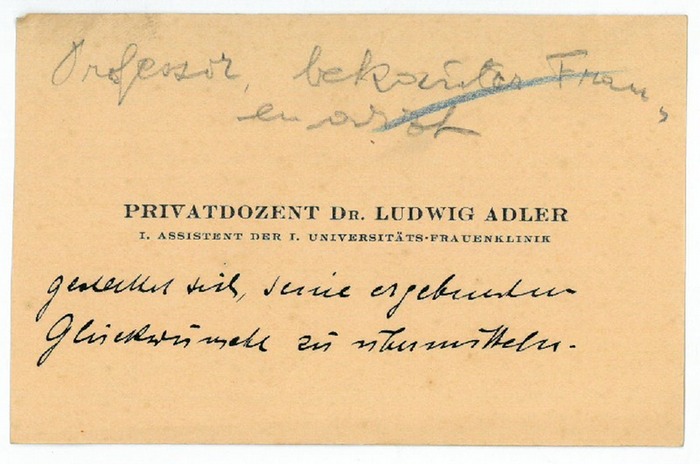 Professor, bekannter Frau-
enarzt
PRIVATDOZENT DR. LUDWIG ADLER
I. ASSISTENT DER I. UNIVERSITÄTS-FRAUENKLINIK
gestattet sich, seine ergebensten
Glückwünsche zu übermitteln.